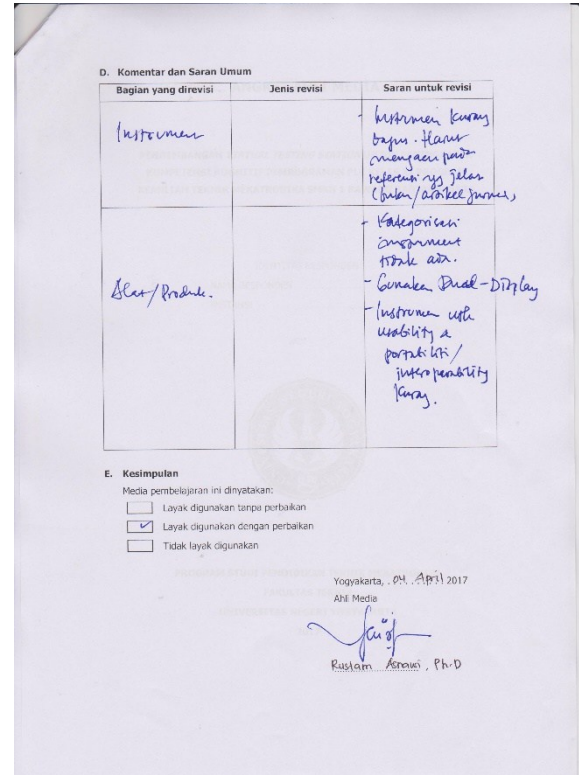 D. Komentar dan Saran Umum
Bagian yang direvisi Jenis revisi Saran untuk revisi
Instrumen
- Instrumen kurang
bagus. Harus
mengacu pada
referensi yg jelas
(buku/artikel jurnal,
- Kategorisasi
tidak ada.
Alat/Produk.
- Gunakan Dual-Display
- Instrumen utk
usability &
portabiliti/
interoperability
kurang.
E. Kesimpulan
Media pembelajaran ini dinyatakan:
Layak digunakan tanpa perbaikan
✓ Layak digunakan dengan perbaikan
Tidak layak digunakan
Yogyakarta, 04 April 2017
Ahli Media
Rustam Asnawi, Ph.D